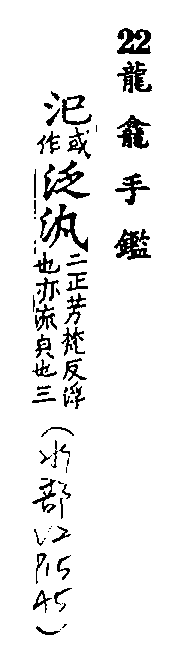 22龍龕手鑑
汜或作泛汎二正芳梵反浮也亦流皃也三（水部V2P15A5）